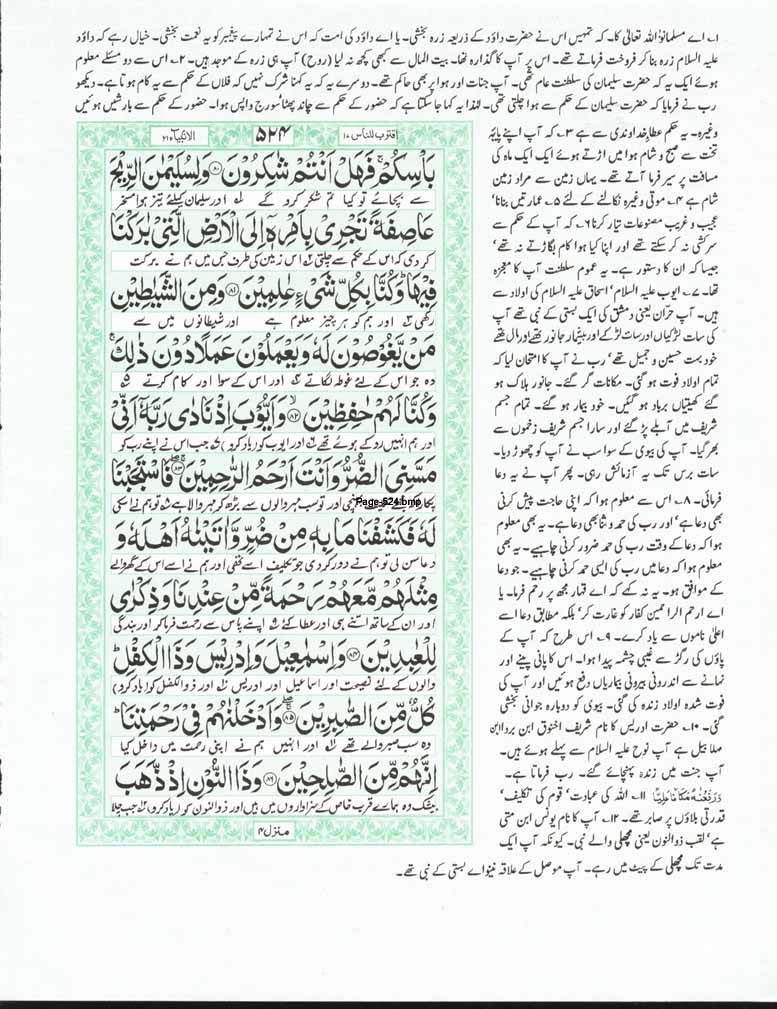 ۱۔ اے مسلمانو! اللہ تعالیٰ کا۔ کہ تمہیں اس نے حضرت داؤد کے ذریعہ زرہ بخشی۔ یا اے داؤد کی امت کہ اس نے تمہارے پیغمبر کو یہ نعمت بخشی۔ خیال رہے کہ داؤد
علیہ السلام زرہ بنا کر فروخت فرماتے تھے۔ اس پر آپ کا گذارہ تھا۔ بیت المال سے کبھی کچھ نہ لیا (روح) آپ ہی زرہ کے موجد ہیں۔ ۲۔ اس سے دو مسئلے معلوم
ہوئے ایک یہ کہ حضرت سلیمان کی سلطنت عام تھی۔ آپ جنات اور ہوا پر بھی حاکم تھے۔ دوسرے یہ کہ یہ کہنا شرک نہیں کہ فلاں کے حکم سے یہ کام ہوتا ہے۔ دیکھو
رب نے فرمایا کہ حضرت سلیمان کے حکم سے ہوا چلتی تھی۔ لہٰذا یہ کہا جا سکتا ہے کہ حضور کے حکم سے چاند پھٹا سورج واپس ہوا۔ حضور کے حکم سے بارشیں ہوئیں
وغیرہ۔ یہ حکم عطاء خداوندی سے ہے ۳۔ کہ آپ اپنے پایۂ
تخت سے صبح و شام ہوا میں اڑتے ہوئے ایک ایک ماہ کی
مسافت پر سیر فرما آتے تھے۔ یہاں زمین سے مراد زمین
شام ہے ۴۔ موتی وغیرہ نکالنے کے لئے ۵۔ عمارتیں بنانا،
عجیب و غریب مصنوعات تیار کرنا ۶۔ کہ آپ کے حکم سے
سرکشی نہ کر سکتے تھے اور اپنا کیا ہوا کام بگاڑتے نہ تھے،
جیسا کہ ان کا دستور ہے۔ یہ عموم سلطنت آپ کا معجزہ
تھا۔ ۷۔ ایوب علیہ السلام، اسحاق علیہ السلام کی اولاد سے
ہیں۔ آپ حران یعنی دمشق کی ایک بستی کے نبی تھے آپ
کی سات لڑکیاں اور سات لڑکے اور بیشمار جانور تھے اور مال تھے
خود بہت حسین و جمیل تھے، رب نے آپ کا امتحان لیا کہ
تمام اولاد فوت ہو گئی۔ مکانات گر گئے۔ جانور ہلاک ہو
گئے کھیتیاں برباد ہو گئیں۔ خود بیمار ہو گئے۔ تمام جسم
شریف میں آبلے پڑ گئے اور سارا جسم شریف زخموں سے
بھر گیا۔ آپ کی بیوی کے سوا سب نے آپ کو چھوڑ دیا۔
سات برس تک یہ آزمائش رہی۔ پھر آپ نے یہ دعا
فرمائی۔ ۸۔ اس سے معلوم ہوا کہ اپنی حاجت پیش کرنی
بھی دعا ہے، اور رب کی حمد و ثنا بھی دعا ہے۔ یہ بھی معلوم
ہوا کہ دعا کے وقت رب کی حمد ضرور کرنی چاہیے۔ یہ بھی
معلوم ہوا کہ دعا میں رب کی ایسی حمد کرنی چاہیے۔ جو دعا
کے موافق ہو۔ یہ نہ کہے کہ اے قہار مجھ پر رحم فرما۔ یا
اے ارحم الراحمین کفار کو غارت کر، بلکہ مطابق دعا اسے
اعلیٰ ناموں سے یاد کرے۔ ۹۔ اس طرح کہ آپ کے
پاؤں کی رگڑ سے غیبی چشمہ پیدا ہوا۔ اس کا پانی پینے اور
نہانے سے اندرونی بیرونی بیماریاں دفع ہوئیں اور آپ کی
فوت شدہ اولاد زندہ کی گئی۔ بیوی کو دوبارہ جوانی بخشی
گئی۔ ۱۰۔ حضرت ادریس کا نام شریف اخنوق ابن برد ابن
مہلائیل ہے آپ نوح علیہ السلام سے پہلے ہوئے ہیں۔
آپ جنت میں زندہ پہنچائے گئے۔ رب فرماتا ہے۔
وَرَفَعْنٰهُ مَكَانًا عَلِيًّا ۱۱۔ اللہ کی عبادت، قوم کی تکلیف،
قدرتی بلاؤں پر صابر تھے۔ ۱۲۔ آپ کا نام یونس ابن متی
ہے، لقب ذوالنون یعنی مچھلی والے نبی۔ کیونکہ آپ ایک
مدت تک مچھلی کے پیٹ میں رہے۔ آپ موصل کے علاقہ نینوا کے بستی کے نبی تھے۔
اقترب للناس ۱۷ ۵۲۴ الانبیاء ۲۱
بَاْسِكُمْ ۚ فَهَلْ اَنْتُمْ شٰكِرُوْنَ ﴿۸۰﴾ وَلِسُلَيْمٰنَ الرِّيْحَ
سے بچائے تو کیا تم شکر کرو گے ۱ اور سلیمان کیلئے تیز ہوا مسخر
عَاصِفَةً تَجْرِيْ بِاَمْرِهٖۤ اِلَى الْاَرْضِ الَّتِيْ بٰرَكْنَا
کر دی کہ اس کے حکم سے چلتی ۲ اس زمین کی طرف جس میں ہم نے برکت
فِيْهَا ؕ وَكُنَّا بِكُلِّ شَيْءٍ عٰلِمِيْنَ ﴿۸۱﴾ وَمِنَ الشَّيٰطِيْنِ
رکھی ۳ اور ہم کو ہر چیز معلوم ہے اور شیطانوں میں سے
مَنْ يَّغُوْصُوْنَ لَهٗ وَيَعْمَلُوْنَ عَمَلًا دُوْنَ ذٰلِكَ ۚ
وہ جو اس کے لئے غوطہ لگاتے ۴ اور اس کے سوا اور کام کرتے ۵
وَكُنَّا لَهُمْ حٰفِظِيْنَ ﴿۸۲﴾ وَاَيُّوْبَ اِذْ نَادٰى رَبَّهٗۤ اَنِّيْ
اور ہم انہیں روکے ہوئے تھے ۶ اور ایوب کو (یاد کرو) ۷ جب اس نے اپنے رب کو
مَسَّنِيَ الضُّرُّ وَاَنْتَ اَرْحَمُ الرّٰحِمِيْنَ ﴿۸۳﴾ فَاسْتَجَبْنَا
اور تو سب مہر والوں سے بڑھ کر مہر والا ہے ۸ تو ہم نے اسکی
Page-524.bmp
لَهٗ فَكَشَفْنَا مَا بِهٖ مِنْ ضُرٍّ وَّاٰتَيْنٰهُ اَهْلَهٗ وَ
دعا سن لی تو ہم نے دور کر دی جو تکلیف اسے تھی اور ہم نے اسے اس کے گھر والے
مِثْلَهُمْ مَّعَهُمْ رَحْمَةً مِّنْ عِنْدِنَا وَذِكْرٰى
اور ان کے ساتھ اتنے ہی اور عطا کئے ۹ اپنے پاس سے رحمت فرما کر اور بندگی
لِلْعٰبِدِيْنَ ﴿۸۴﴾ وَاِسْمٰعِيْلَ وَاِدْرِيْسَ وَذَا الْكِفْلِ ؕ
والوں کے لئے نصیحت اور اسماعیل اور ادریس ۱۰ اور ذوالکفل کو (یاد کرو)
كُلٌّ مِّنَ الصّٰبِرِيْنَ ﴿۸۵﴾ وَاَدْخَلْنٰهُمْ فِيْ رَحْمَتِنَا ؕ
وہ سب صبر والے تھے ۱۱ اور انہیں ہم نے اپنی رحمت میں داخل کیا
اِنَّهُمْ مِّنَ الصّٰلِحِيْنَ ﴿۸۶﴾ وَذَا النُّوْنِ اِذْ ذَّهَبَ
بیشک وہ ہمارے قرب خاص کے سزاواروں میں ہیں اور ذوالنون کو (یاد کرو) ۱۲ جب چلا
منزل ۴